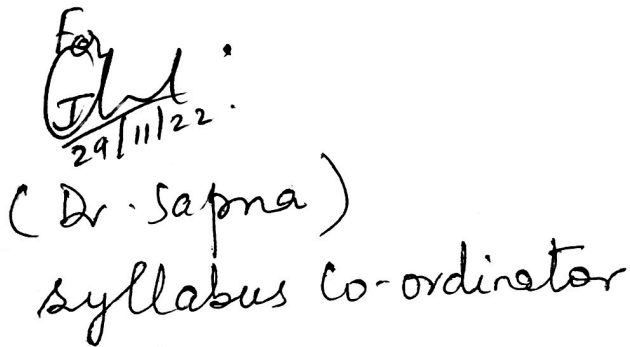 For
29/11/22
(Dr. Sapna)
Syllabus Co-ordinator